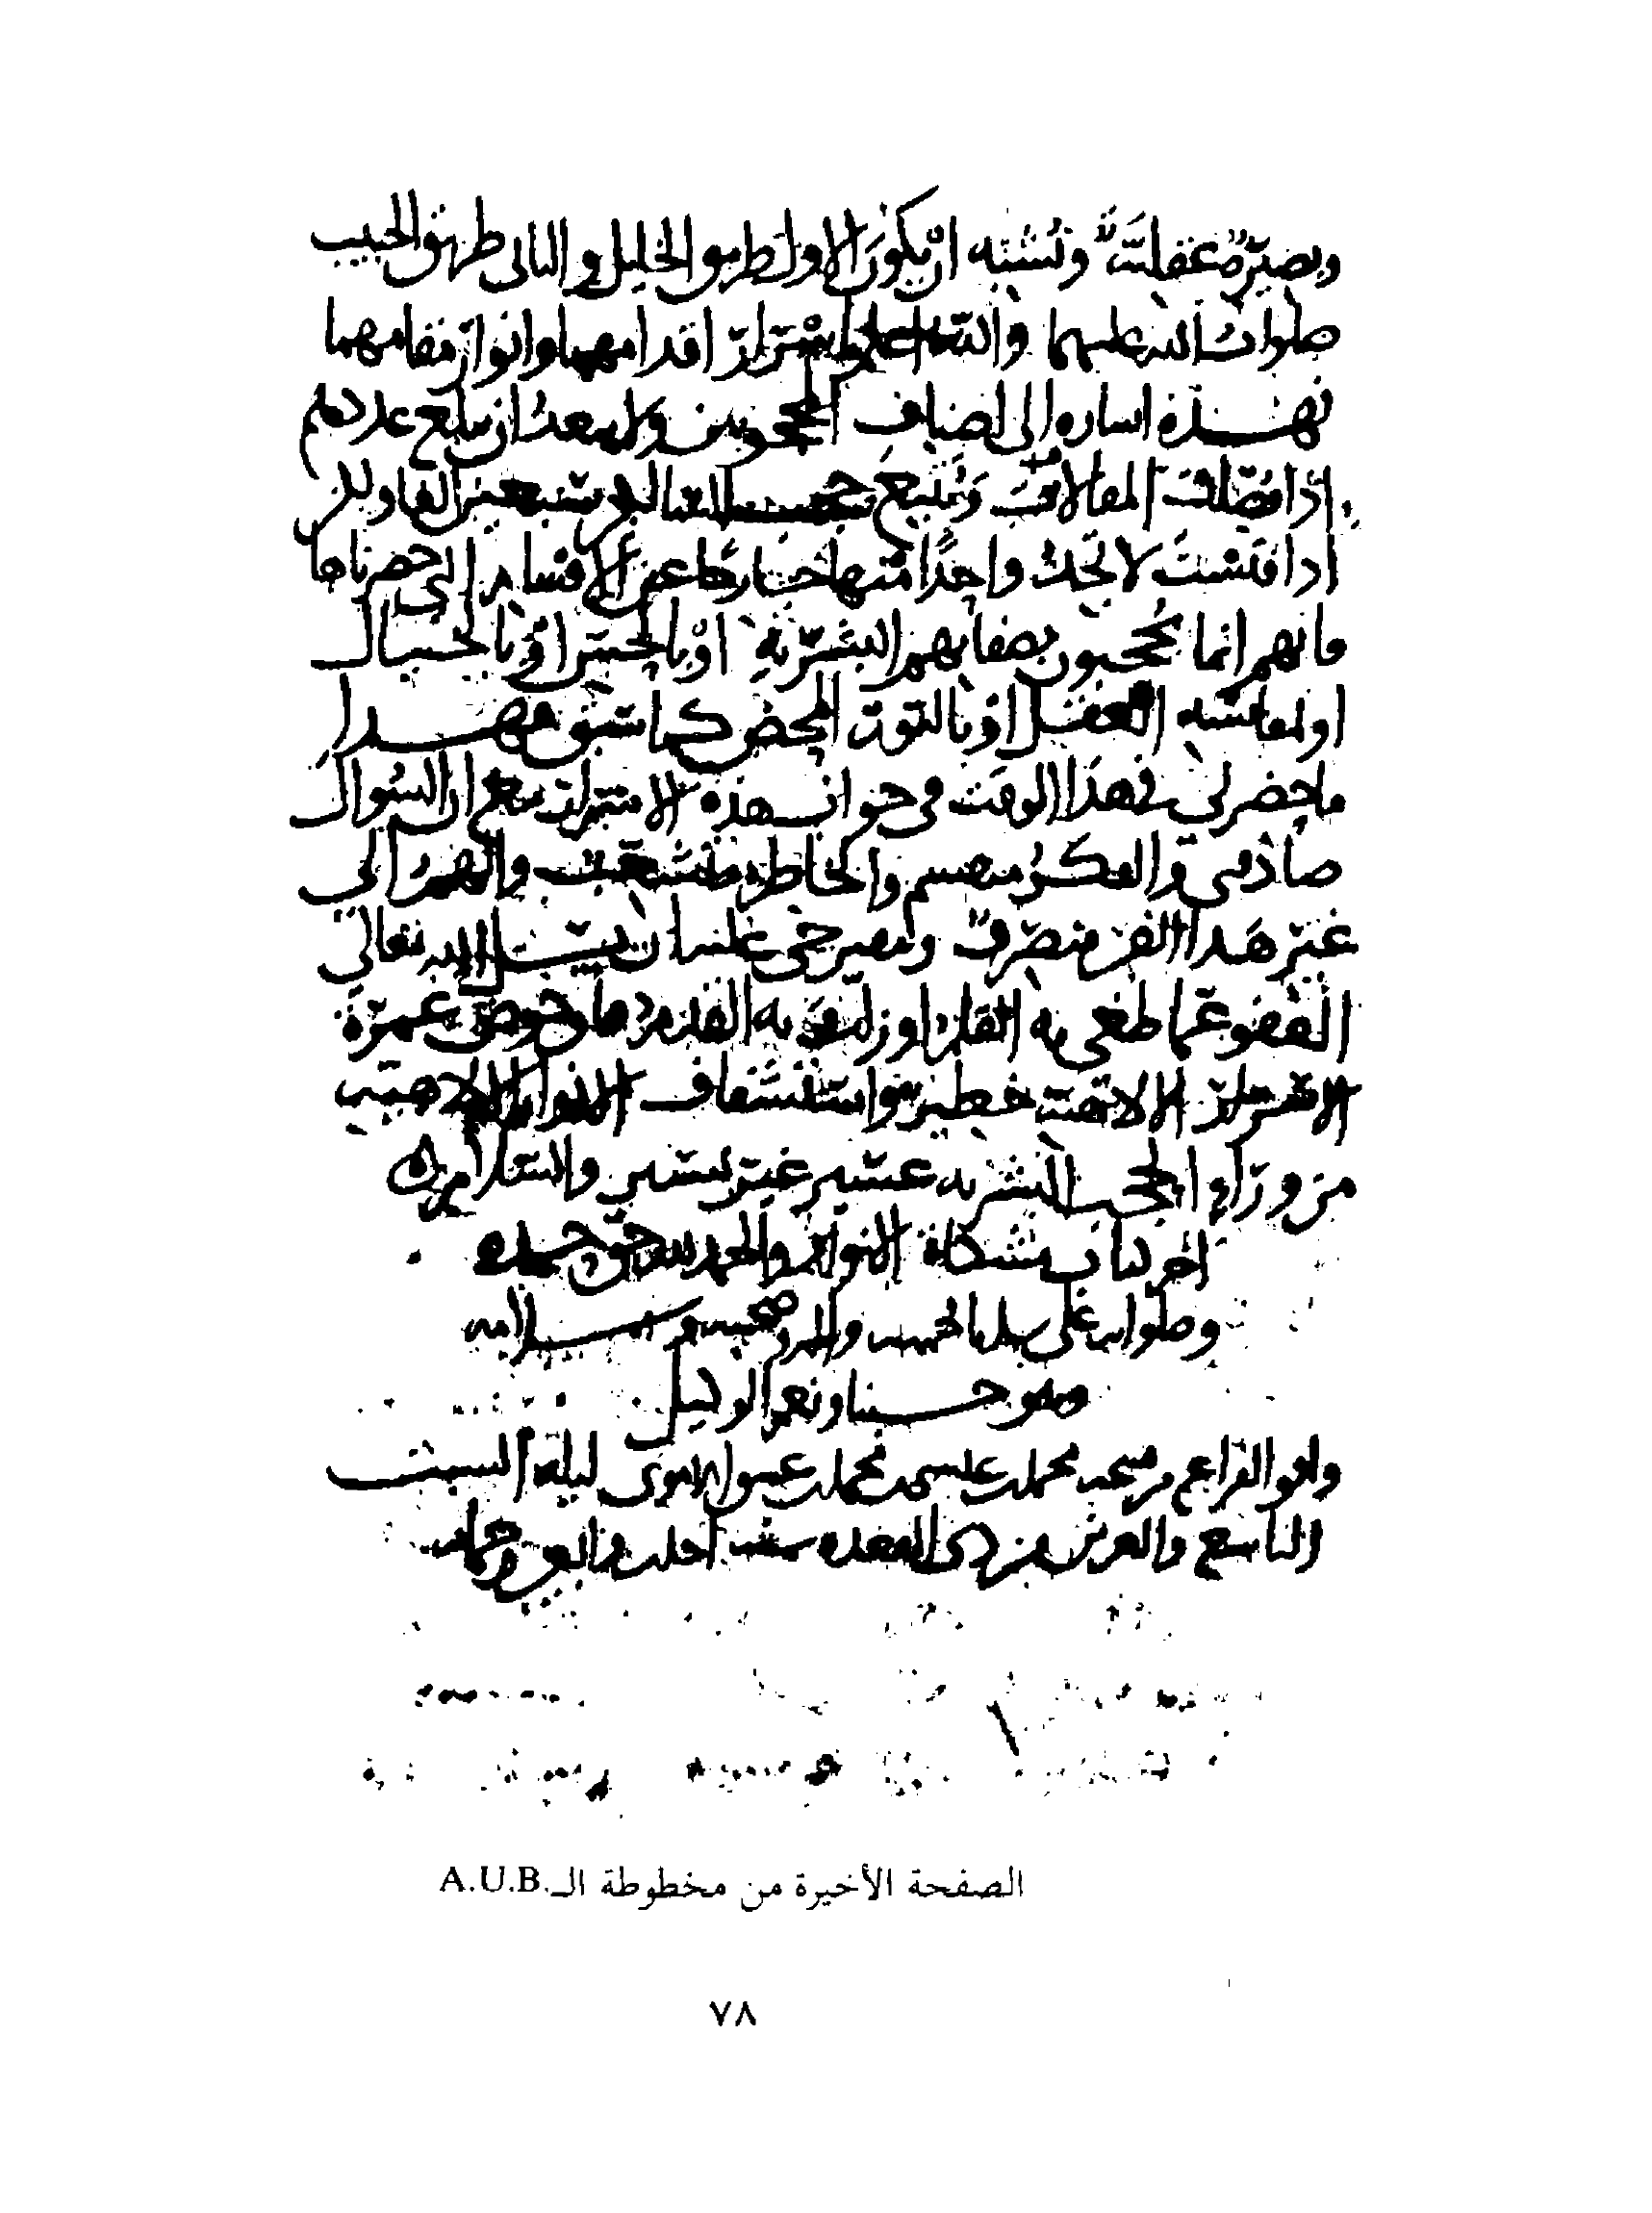 وبصيرة عقلية ويشبه ان يكون الاول طريق الخليل والثاني طريق الحبيب
صلوات الله عليهما والله اعلم باسرار اقدامهما وانوار مقامهما
فهذه اشارة الى اصناف المحجوبين ولا يبعد ان يبلغ عددهم
اذا فصلت المقالات وتتبع حجب السالكين سبعين الفا ولكن
اذا فتشت لا تجد واحدا منها خارجا عن الاقسام التي حصرناها
فانهم انما يحجبون بصفاتهم البشرية او بالحس او بالخيال
او بمقايسة العقل او بالنور المحض كما سبق فهذا
ما حضرني في هذا الوقت في جواب هذه الاسئلة مع ان السؤال
صادفني والفكر منقسم والخاطر متشعب والهم الى
غير هذا الفن منصرف ومقترحي عليه ان يسئل الله تعالى
العفو عما طغى به القلم او زلت به القدم فان خوض غمرة
الاسرار الالاهية خطير واستشفاف الانوار الالاهية
من وراء الحجب البشرية عسير غير يسير والسلام
اخر كتاب مشكاة الانوار والحمد لله حق حمده
وصلواته على سيدنا محمد واله وصحبه وسلامه
وهو حسبنا ونعم الوكيل
وافق الفراغ من محمد بن محمد بن الاموي ليلة السبت
التاسع والعشرين من ذي القعدة سنة احدى واربعين
الصفحة الأخيرة من مخطوطة الـ.A.U.B
٧٨